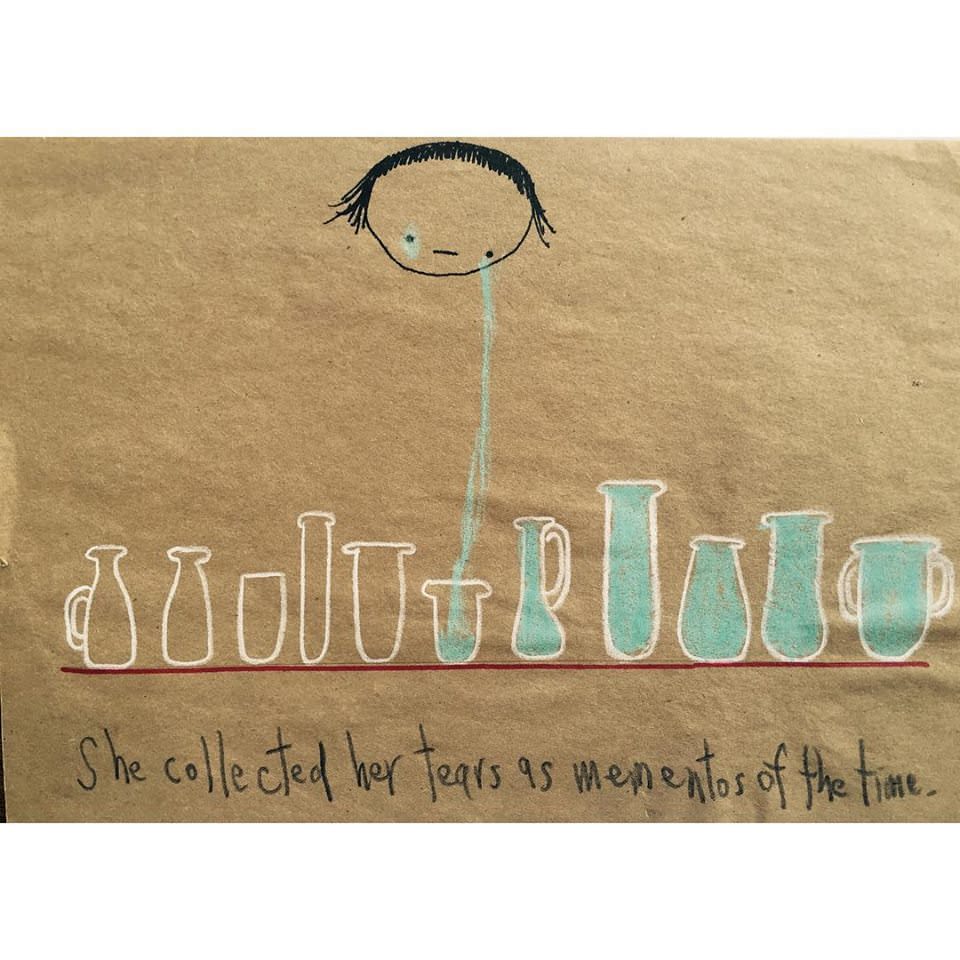 She collected her tears as mementos of the time.